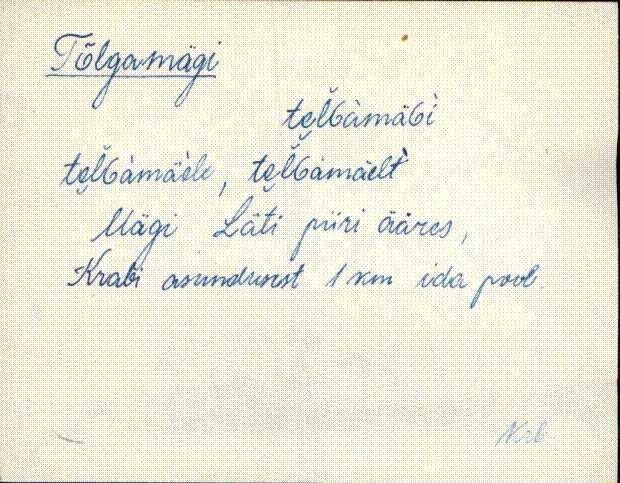 Tõlgamägi
te̮l̆GàmäGì
te̮l̆Gàmäèle, te̮l̆Gàmäelt̀
Mägi Läti piiri ääres,
Krabi asundusest 1 km ida pool
Krb.